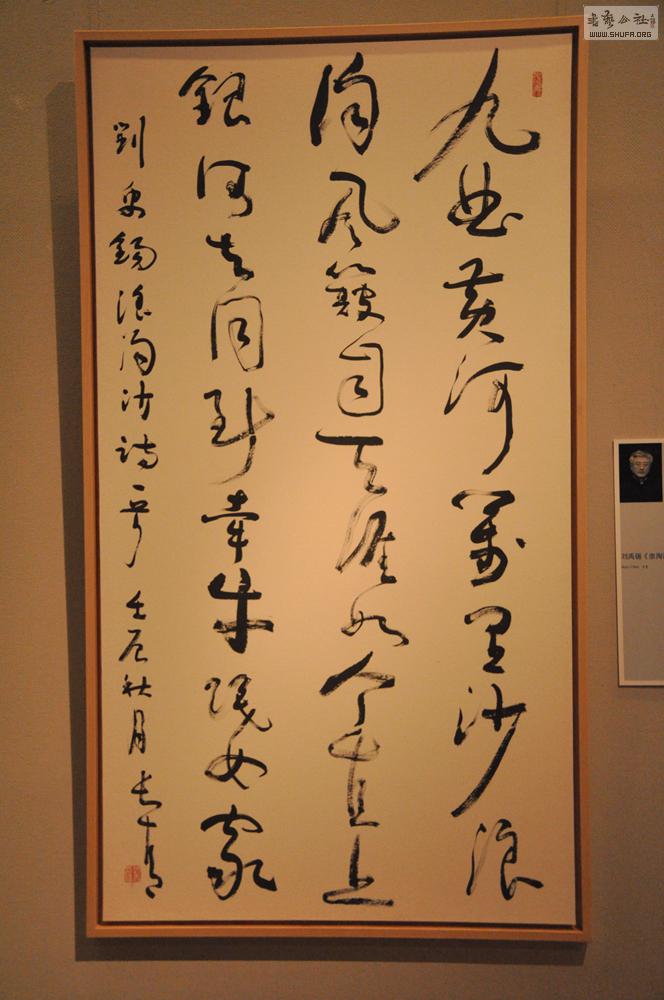 九曲黃河萬里沙浪
淘風簸自天涯如今直上
銀河去同到牽牛織女家
劉禹錫浪淘沙詩一首 壬辰秋月
书艺公社
WWW.SHUFA.ORG
刘禹锡《浪淘